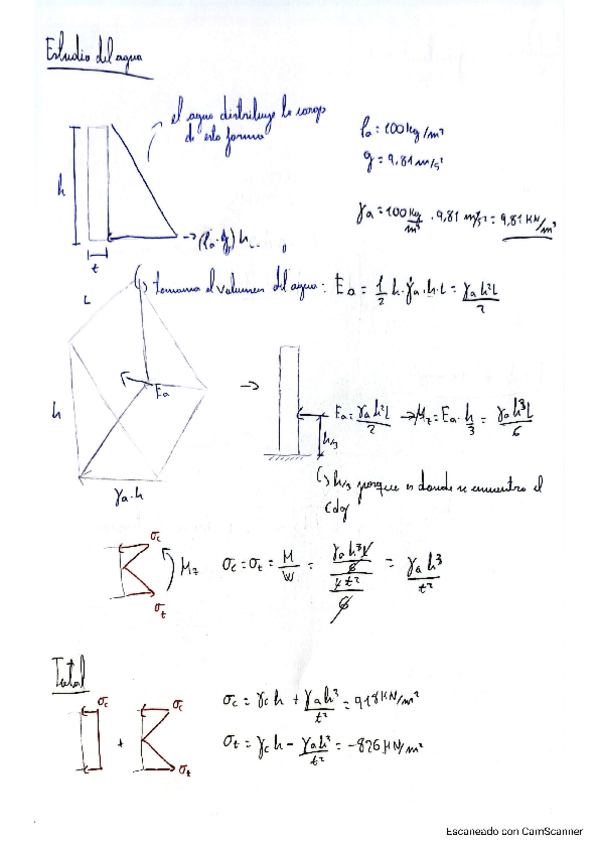 Estudio del agua
el agua distribuye la carga
de esta forma
ρa = 100 kg/m³
g = 9,81 m/s²
h
γa = 100 kg/m³ · 9,81 m/s² = 9,81 KN/m³
→ (ρa·g) h
t
L
↳ tomamos el volumen del agua: Ea = 1/2 h·γa·h·L = γa h²L/2
Ea
h
→
Ea = γa h²L/2 → Mz = Ea · h/3 = γa h³L/6
h/3
γa·h
↳ h/3 porque es donde se encuentra el
cdg
σc
Mz
σc = σt = M/W = (γa h³L/6)/(Lt²/6) = γa h³/t²
σt
Total
σc
σc
σc = γc h + γa h³/t² = 918 KN/m²
+
σt = γc h - γa h³/t² = -826 KN/m²
σt
Escaneado con CamScanner